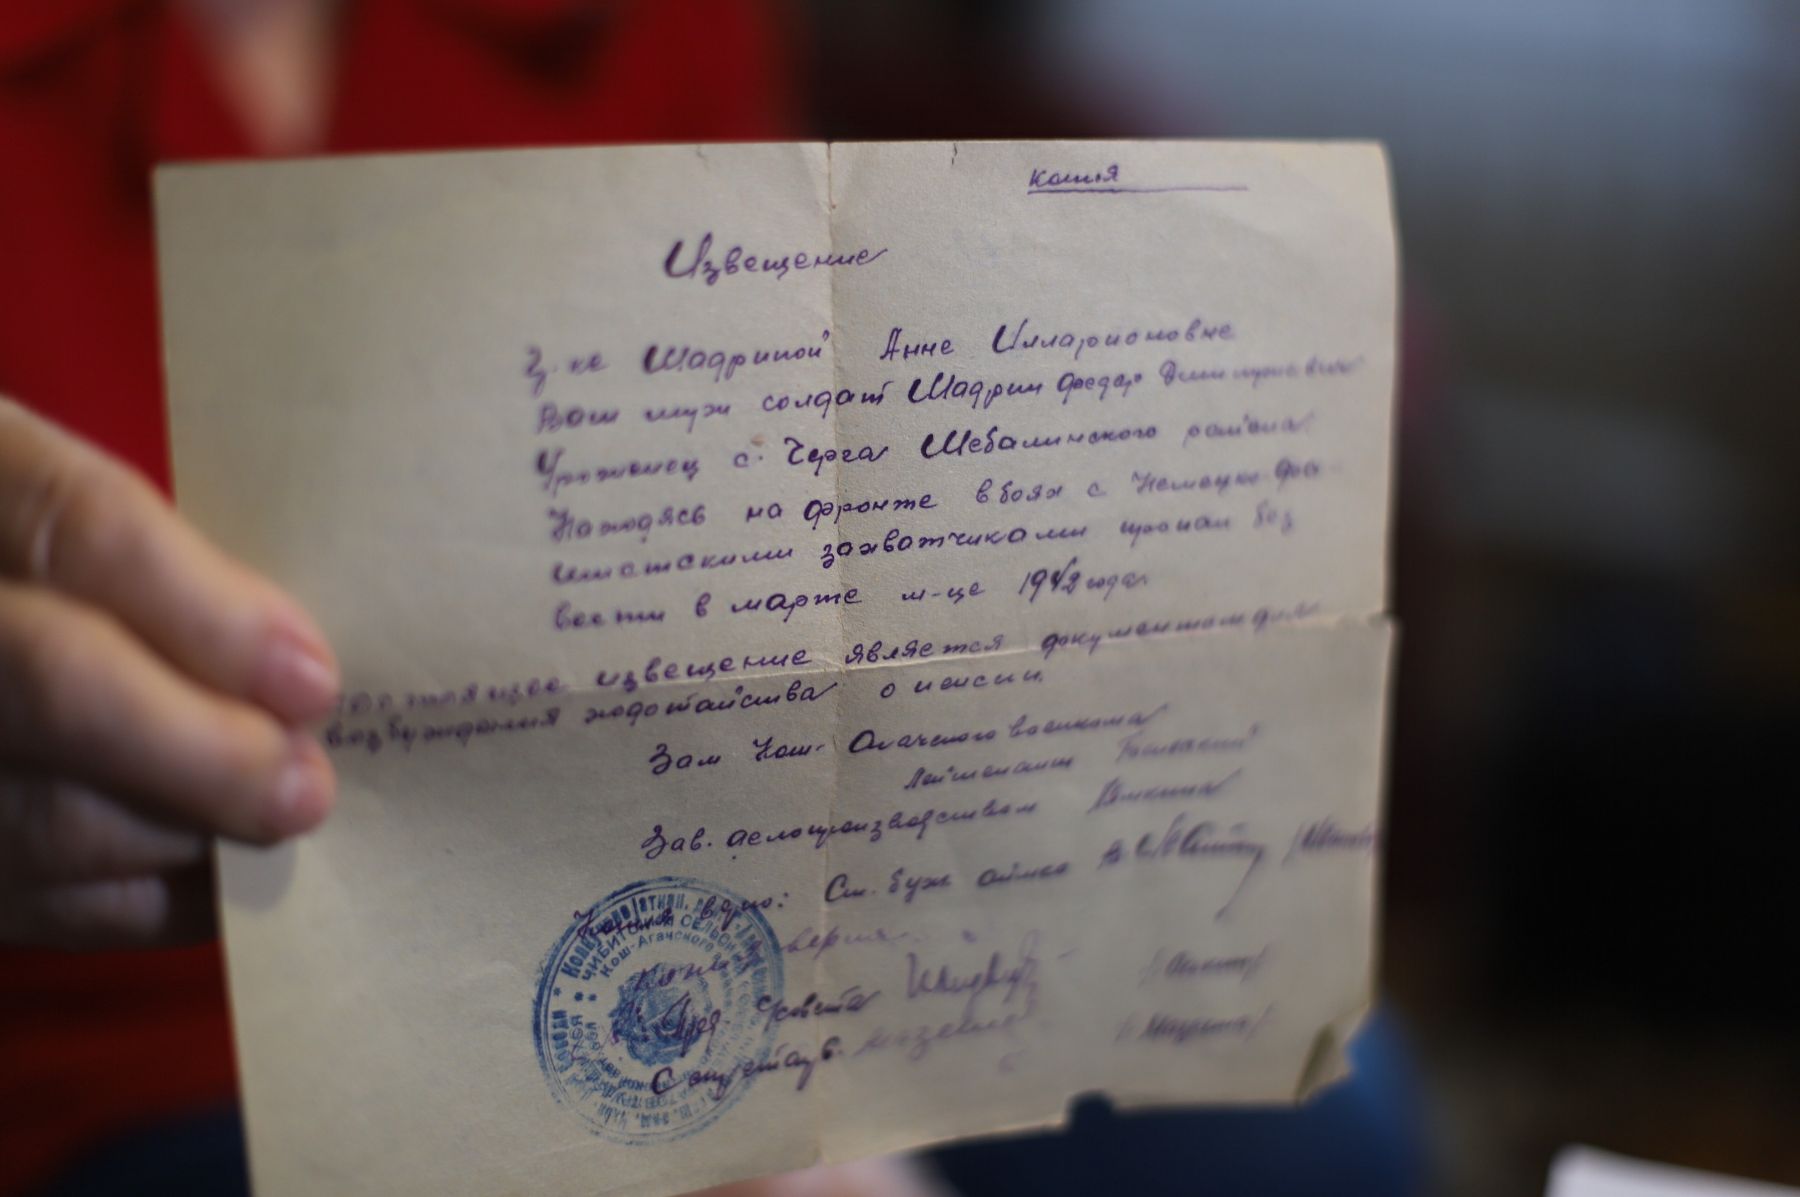 Копия
Извещение
Г-ке Шадриной Анне Илларионовне
Ваш муж солдат Шадрин Федар Дмитриевич
Уроженец с. Черга Шебалинского района
Находясь на фронте в боях с Немецко-фа-
шистскими захватчиками пропал без
вести в марте м-це 1942 года.
Настоящее извещение является документом для
возбуждения ходотайства о пенсии.
Зам Кош-Агачского военкома
Лейтенант
Зав. делопроизводством
Копия верна:
Копия верна
Пред. с/совета
Секретарь
ЧИБИТСКИЙ СЕЛЬСКИЙ
Кош-Агачского